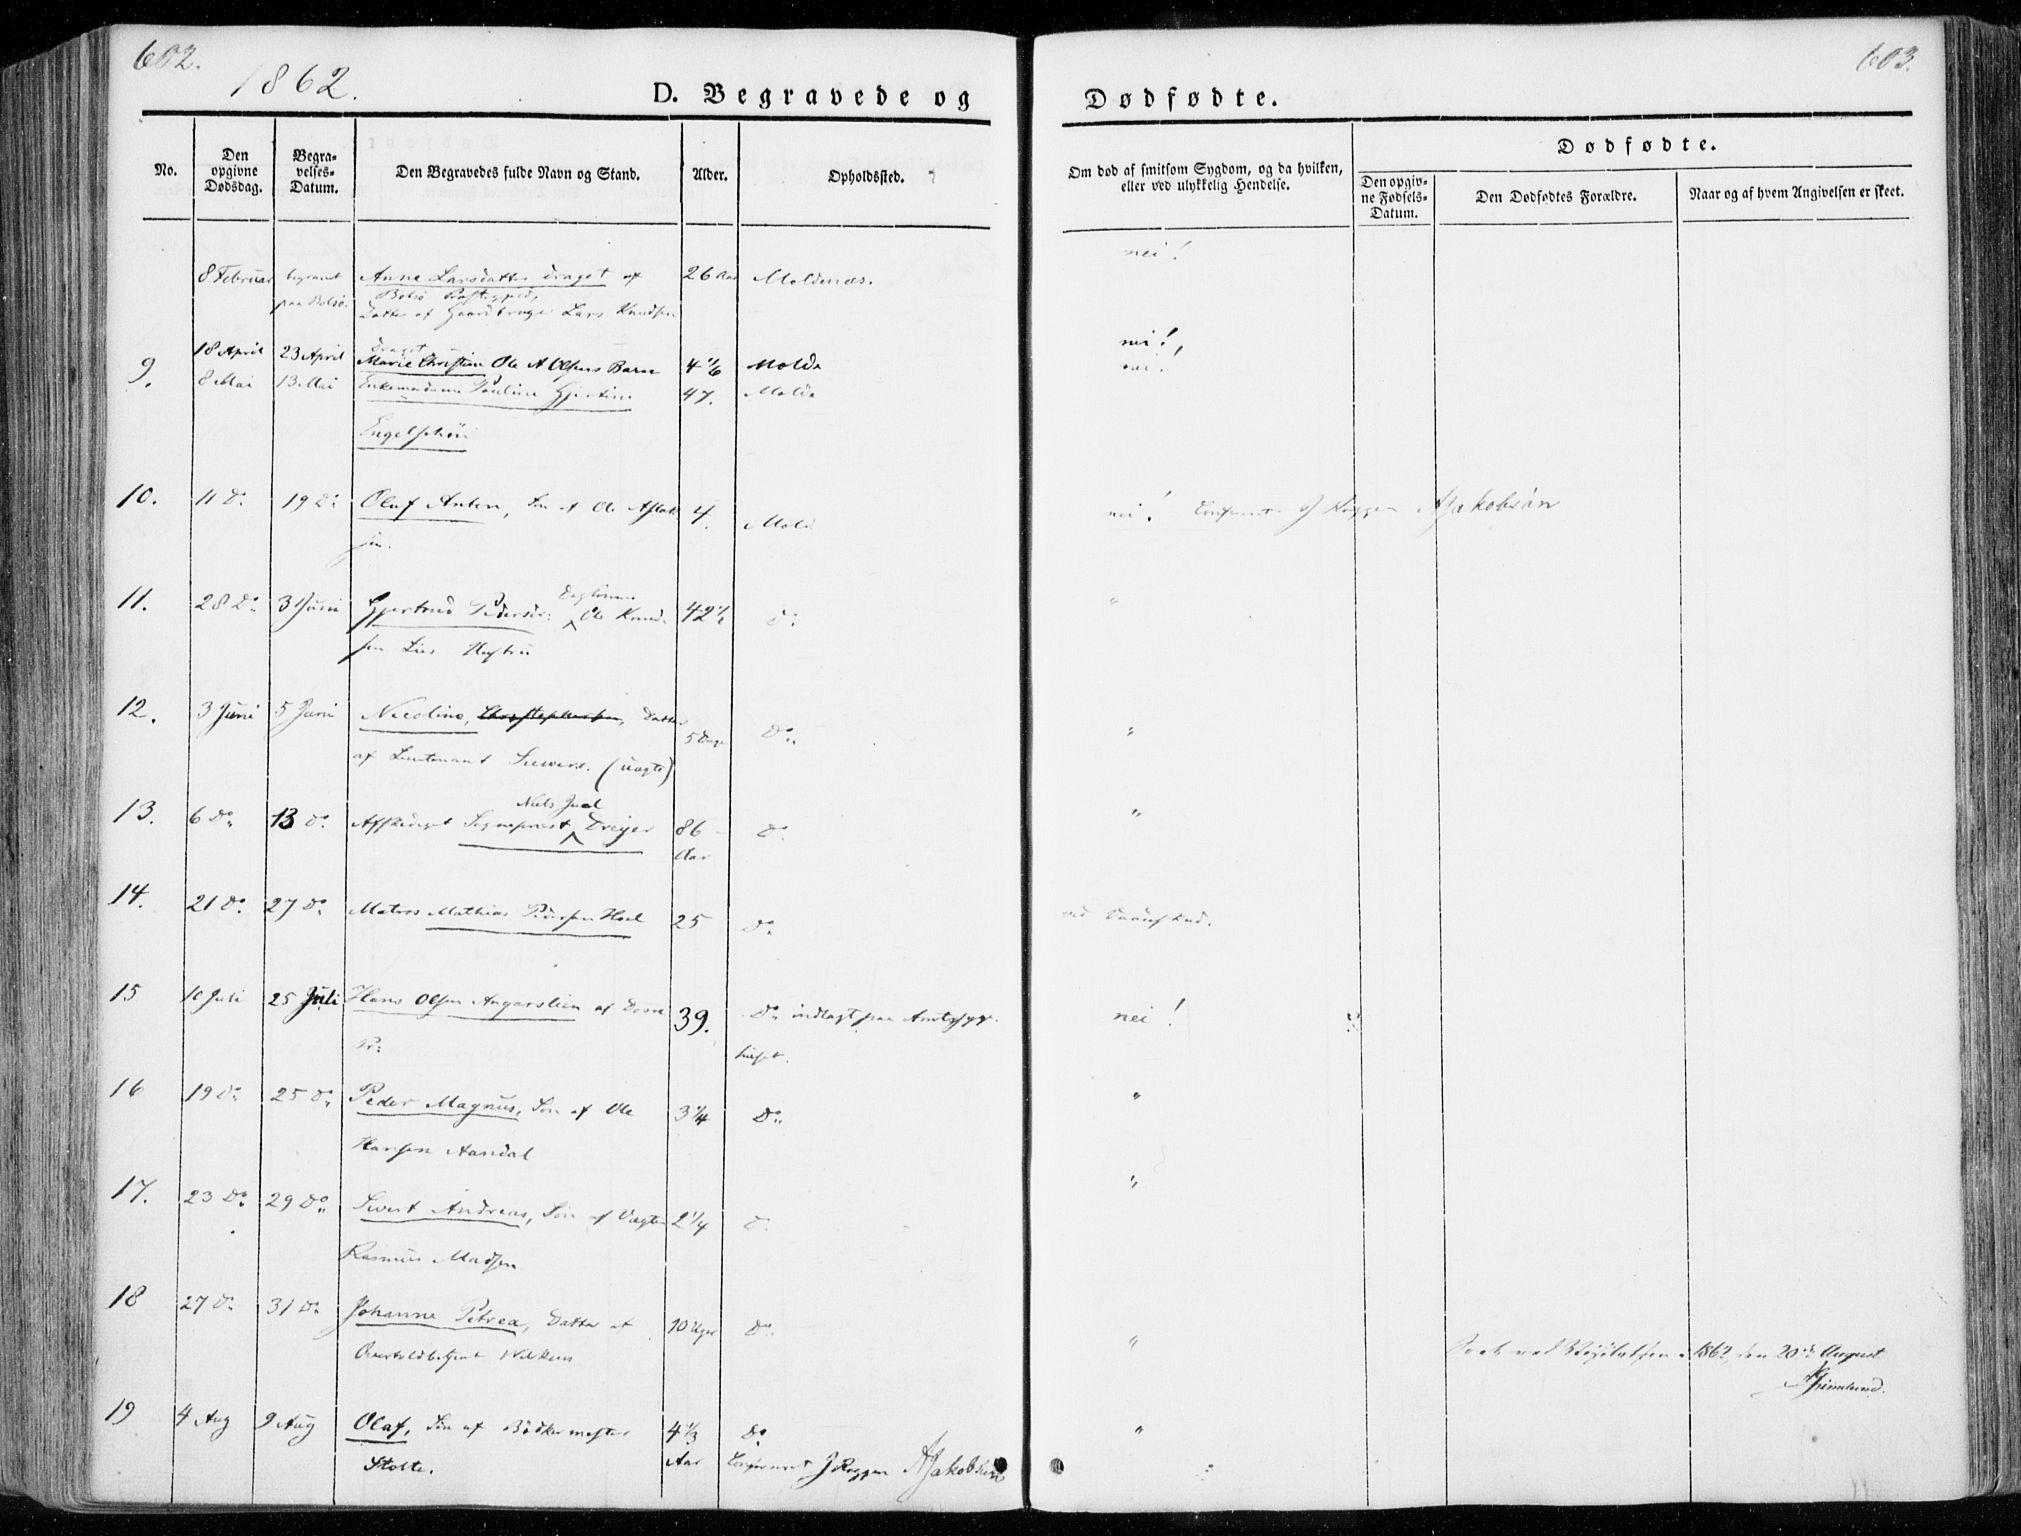 602.
1862.
D. Begravede og
Dødfødte.
603.
No.
Den opgivne Dødsdag.
Begravelses-Datum.
Den Begravedes fulde Navn og Stand.
Alder.
Opholdssted.
Om død af smitsom Sygdom, og da hvilken, eller ved ulykkelig Hendelse.
Dødfødte.
Den opgivne Fødsels-Datum.
Den Dødfødtes Forældre.
Naar og af hvem Angivelsen er skeet.
8 Februar begravet Anne Larsdatter Draget af 26 Aar Moldenæs. nei!
paa Bolsø. Bolsø
Datter af Lars Knudsen
Draget
18 April 23 April Marie Christine Ole A Olsens Barn 4 1/6 Molde nei!
9. 8 Mai 13 Mai Enkemadame Pauline Gjertine 47. Molde nei!
10. 11 Do 19 Do Oluf Anton, Søn af Ole Aslak 4. Molde nei! Confereret J Roggen A Jakobsøn
sen.
11. 28 Do 3 Juni Gjertrud Pedersdr. Ole Knud- 42 1/2 Do "
sen Lies Hustru
12. 3 Juni 5 Juni Nicoline, Datter 5 Dage Do "
af Lieutenant Siewers. (uægte)
Niels Juel
13. 6 Do 13 Do Afskediget Sognepræst Dreyer 86 Aar Do "
14. 21 Do 27 Do Matros Mathias Pedersen Hoel 25 Do ved
15 10 Juli 25 Juli Hans Olsen Angarslien af Dovre 39. Do indlagt paa Amtssyge- nei!
Pr: huset.
16 19 Do 25 Do Peder Magnus, Søn af Ole 3 1/4 Do "
Hansen Aandal
17. 23 Do 29 Do Sivert Andreas, Søn af Vægter 2 1/4 Do "
Rasmus Madsen
18 27 Do 31 Do Johanne Petrea, Datter af 10 Uger Do "
Overtoldbetjent Wilkens
Seet ved Visitatsen 1862, den 20de August
19 4 Aug 9 Aug Olaf, Søn af Bødkermester 4 1/3 Do "
Stolte. Aar Confereret J Roggen A Jakobsen